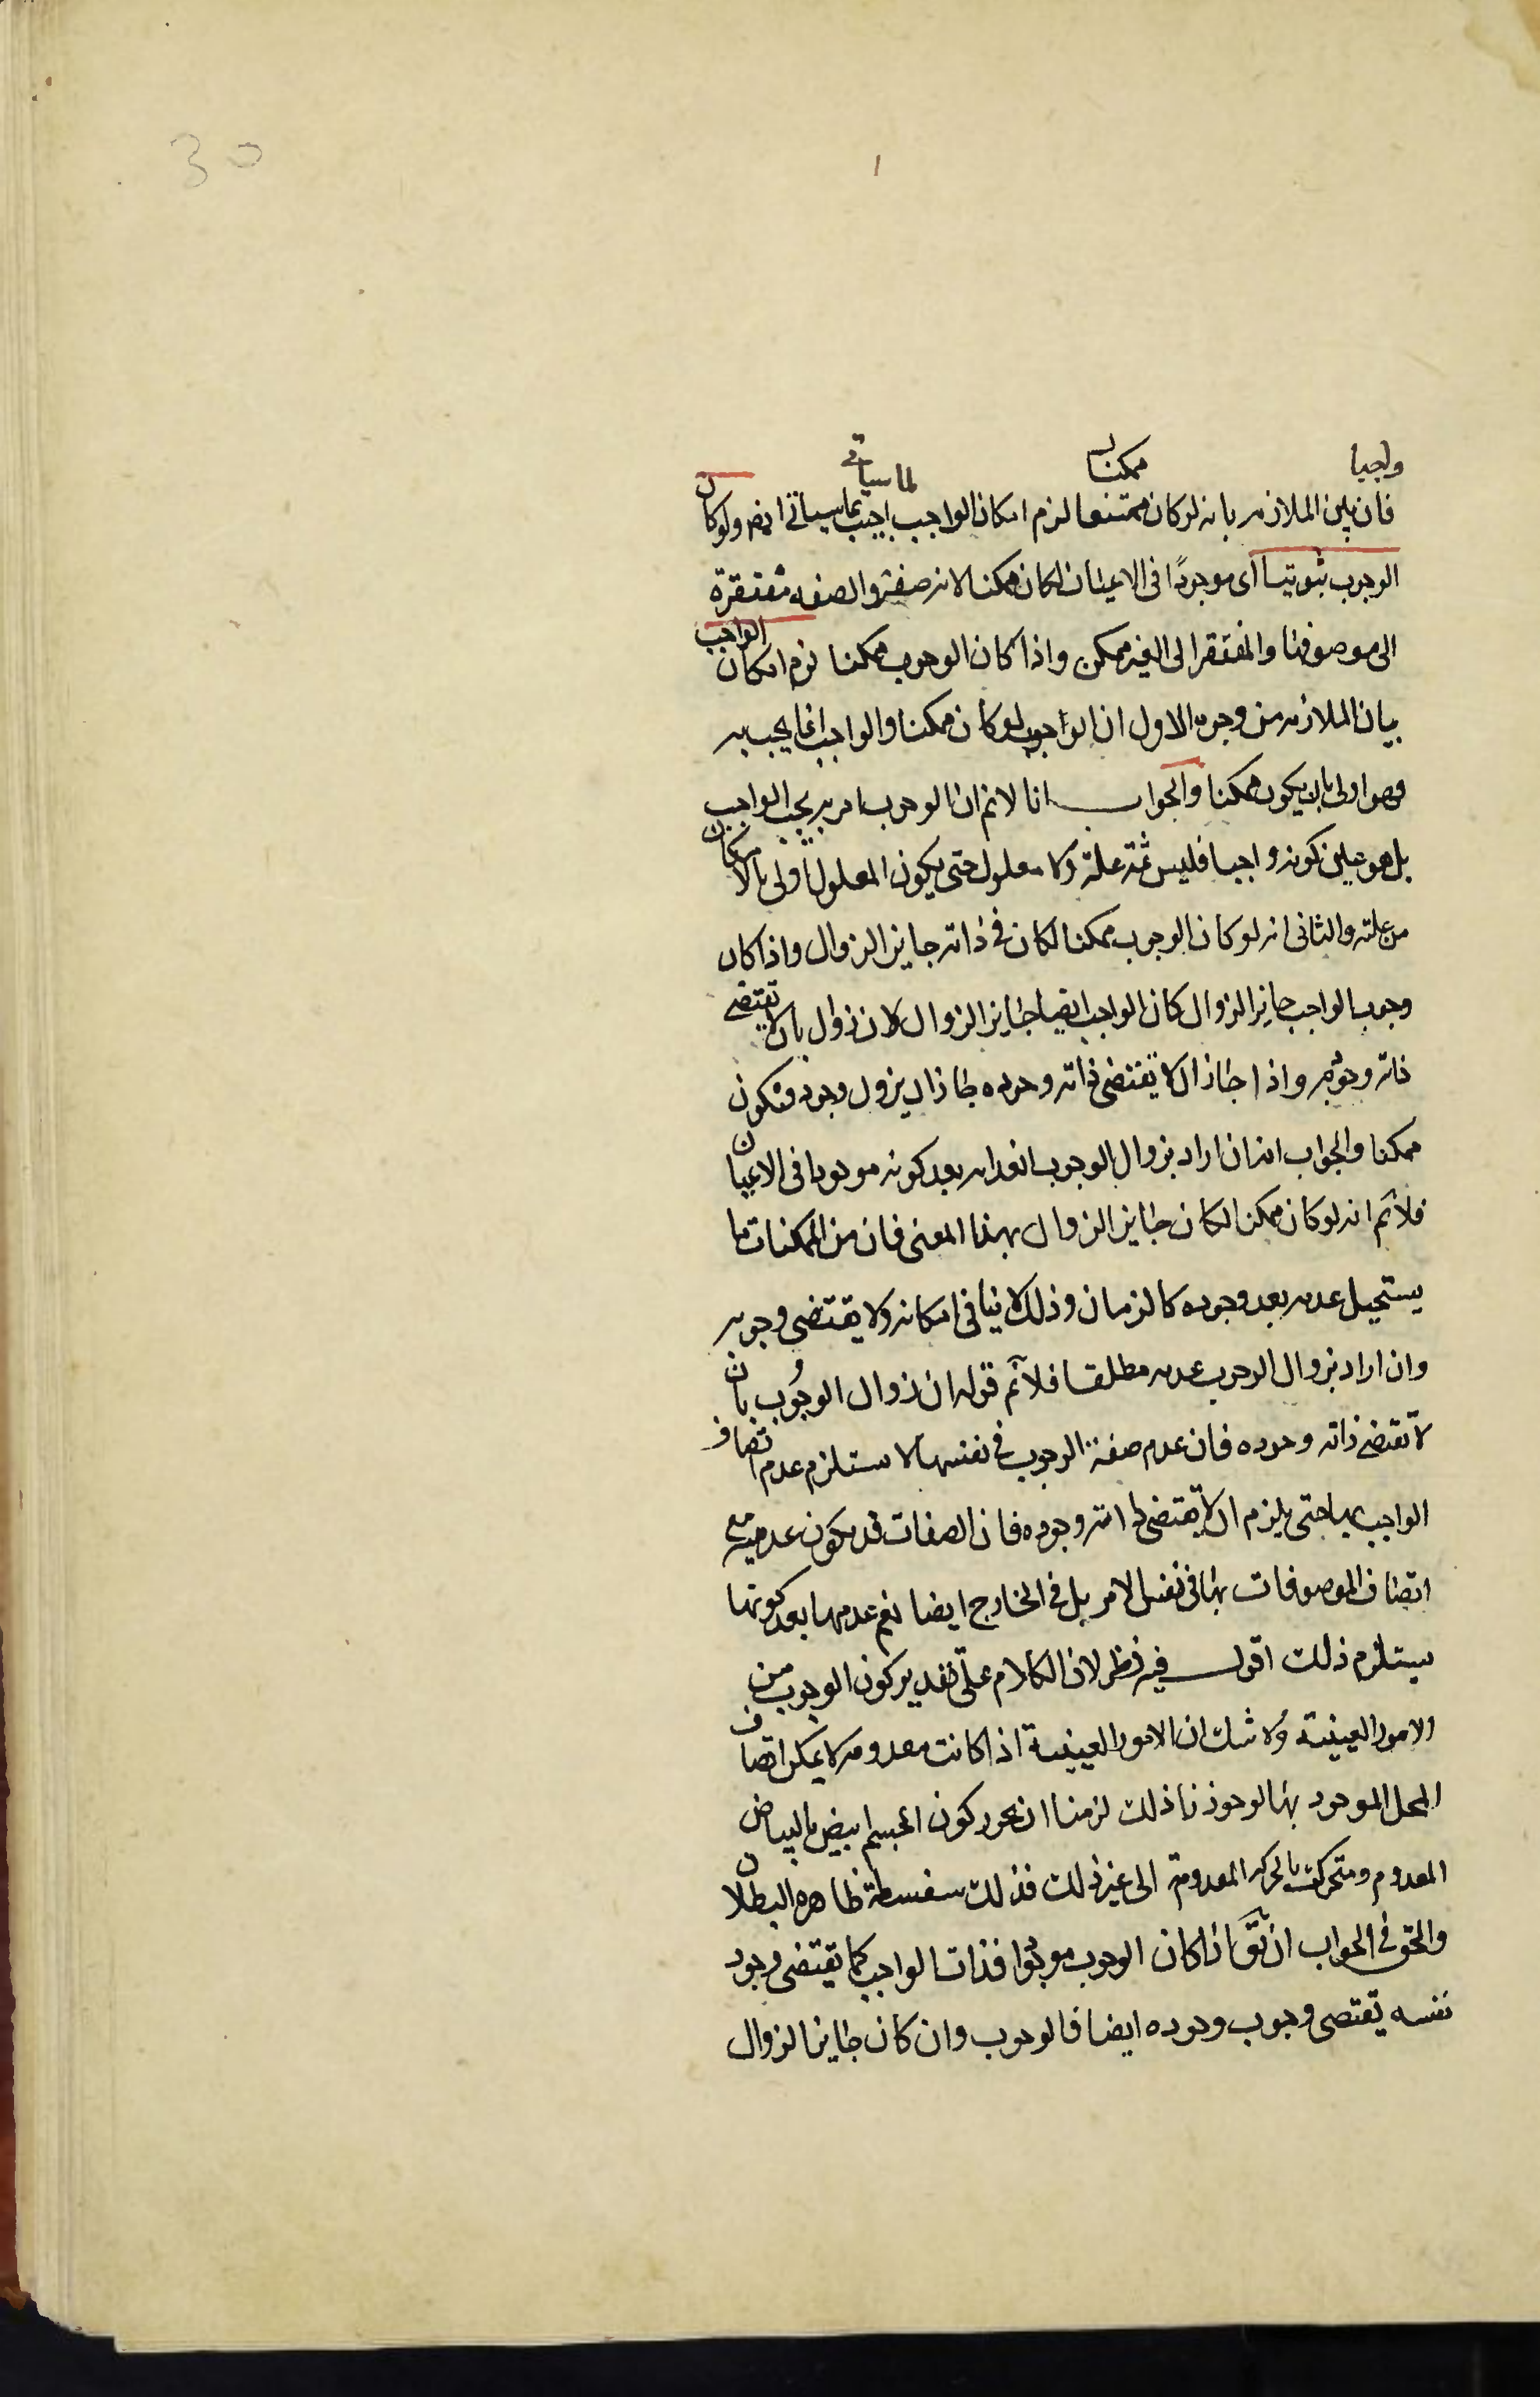 30
١
واجبا ممكنا لما سياتى
فان بين الملازمه بانه لو كان ممتنعا لزم امكان الواجب اجيب بما سياتى ايضا ولو كان
الوجوب ثبوتيا اى موجودًا فى الاعيان لكان ممكنا لانه صفة والصفه مفتقرة
الى موصوفها والمفتقر الى الغير ممكن واذا كان الوجوب ممكنا لزم امكان الواجب
بيان الملازمه من وجوه الاول ان الوجوب لو كان ممكنا والواجب انما يجب به
فهو اولى بان يكون ممكنا والجواب انا لانم ان الوجوب امر به يجب الواجب
بل هو عين كونه واجبا فليس ثمة علة ولا معلول حتى يكون المعلول اولى بالامكان
من علته والثانى انه لو كان الوجوب ممكنا لكان فى ذاته جايز الزوال واذا كان
وجوب الواجب جايز الزوال كان الواجب ايضا جايز الزوال لان زوال بان لا تقتضى
ذاته وجوده واذا جاز ان لا تقتضى ذاته وجوده جاز ان يزول وجوده فيكون
ممكنا والجواب انه ان اراد بزوال الوجوب انعدامه بعد كونه موجودا فى الاعيان
فلانم انه لو كان ممكنا لكان جايز الزوال بهذا المعنى فان من الممكنات ما
يستحيل عدمه بعد وجوده كالزمان وذلك لا ينافى امكانه ولا يقتضى وجوبه
وان اراد بزوال الوجوب عدمه مطلقا فلانم قوله ان زوال الوجوب بان
لا تقتضى ذاته وجوده فان عدم صفة الوجوب فى نفسها لا يستلزم عدم اتصاف
الواجب بها حتى يلزم ان لا تقتضى ذاته وجوده فان الصفات قد يكون عدمية مع
اتصاف الموصوفات بها فى نفس الامر بل فى الخارج ايضا نعم عدمها بعد كونها
يستلزم ذلك اقول فيه نظر لان الكلام على تقدير كون الوجوب من
الامور العينية ولا شك ان الامور العينية اذا كانت معدومه لا يمكن اتصاف
المحل الموجود بها لو جوزنا ذلك لزمنا ان نجوز كون الجسم ابيض بالبياض
المعدوم ومتحركا بالحركه المعدومة الى غير ذلك فذلك سفسطة ظاهره البطلان
والحق فى الجواب ان يق اذا كان الوجوب موجودا فذات الواجب كما تقتضى وجود
نفسه تقتضى وجوب وجوده ايضا فالوجوب وان كان جايز الزوال